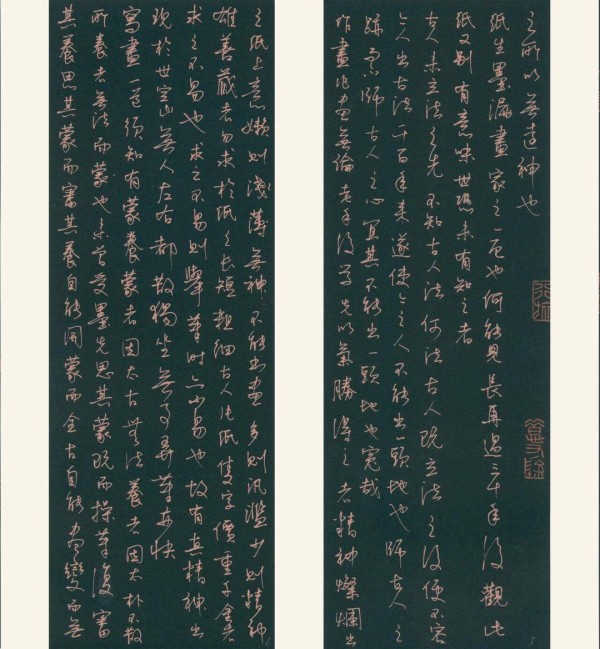 之所以無造神也
紙生墨漏畫家之一厄也何能見長再過三十年後觀此
紙又別有意味世恐未有知之者
古人未立法之先不知古人法何法古人既立法之後便不容
今人出古法千百年來遂使今之人不能出一頭地也師古人之
跡而不師古人之心宜其不能出一頭地也冤哉
作畫作書無論老手後學先以氣勝得之者精神燦爛出
之紙上意懶則淺薄無神不能書畫多則汎濫少則精神
雄善藏者勿求於紙之長短粗細古人片紙隻字價重千金者
求之不易也求之不易則舉筆時亦不易也故有真精神出
現於世空山無人左右都散獨坐無事弄筆亦快
寫畫一道須知有蒙養蒙者因太古無法養者因太朴不散
所養者無法而蒙也未曾受墨先思其蒙既而操筆復審
其養思其蒙而審其養自能開蒙而全古自能盡變而無